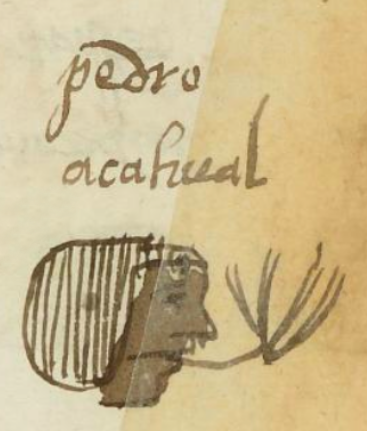 pedro
acahual